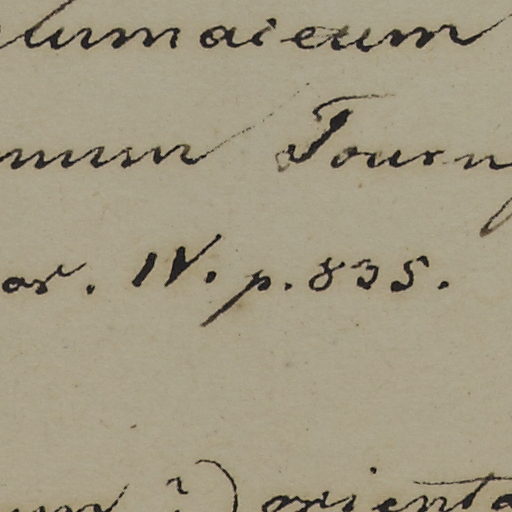 lumaicum
num Tourn
or. IV. p. 835.
um ?) orienta